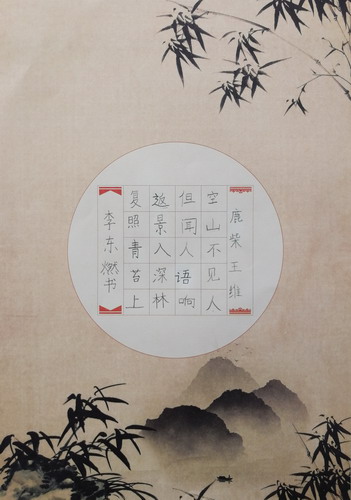 鹿柴王维
空山不见人
但闻人语响
返景入深林
复照青苔上
李东燃书